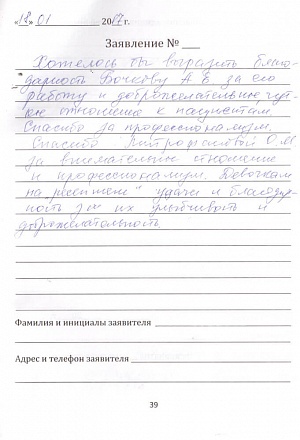 «12» 01 2017 г.
Заявление №
Хотелось бы выразить благо-
дарность Бочкову А.Е. за его
работу и доброжелательные, чут-
кое отношение к пациентам.
Спасибо за профессионализм.
Спасибо Митрофановой О.М.
за внимательное отношение
и профессионализм. Девочкам
на ресепшене" удачи и благодар-
ность за их улыбчивость и
доброжелательность.
Фамилия и инициалы заявителя
Адрес и телефон заявителя
39